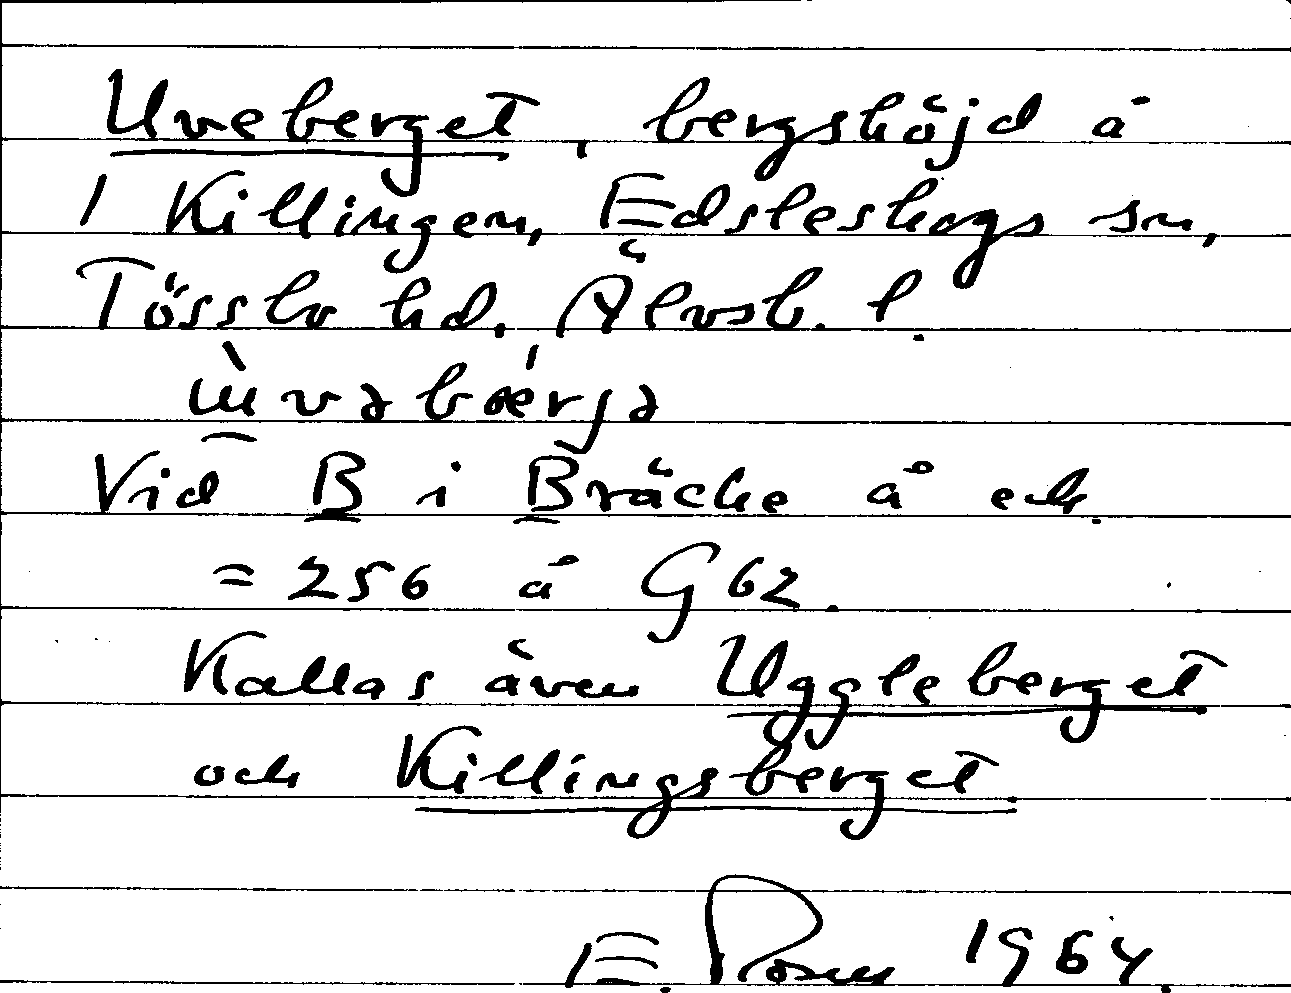 Uveberget, bergshöjd å
1 Killingen, Edsleskogs sn,
Tössbo hd. Älvsb. l.
ùvabǽrja
Vid B i Bräcke å ek.
= 256 å G 62.
Kallas även Uggleberget
och Killingsberget.
E. Rosen 1964.